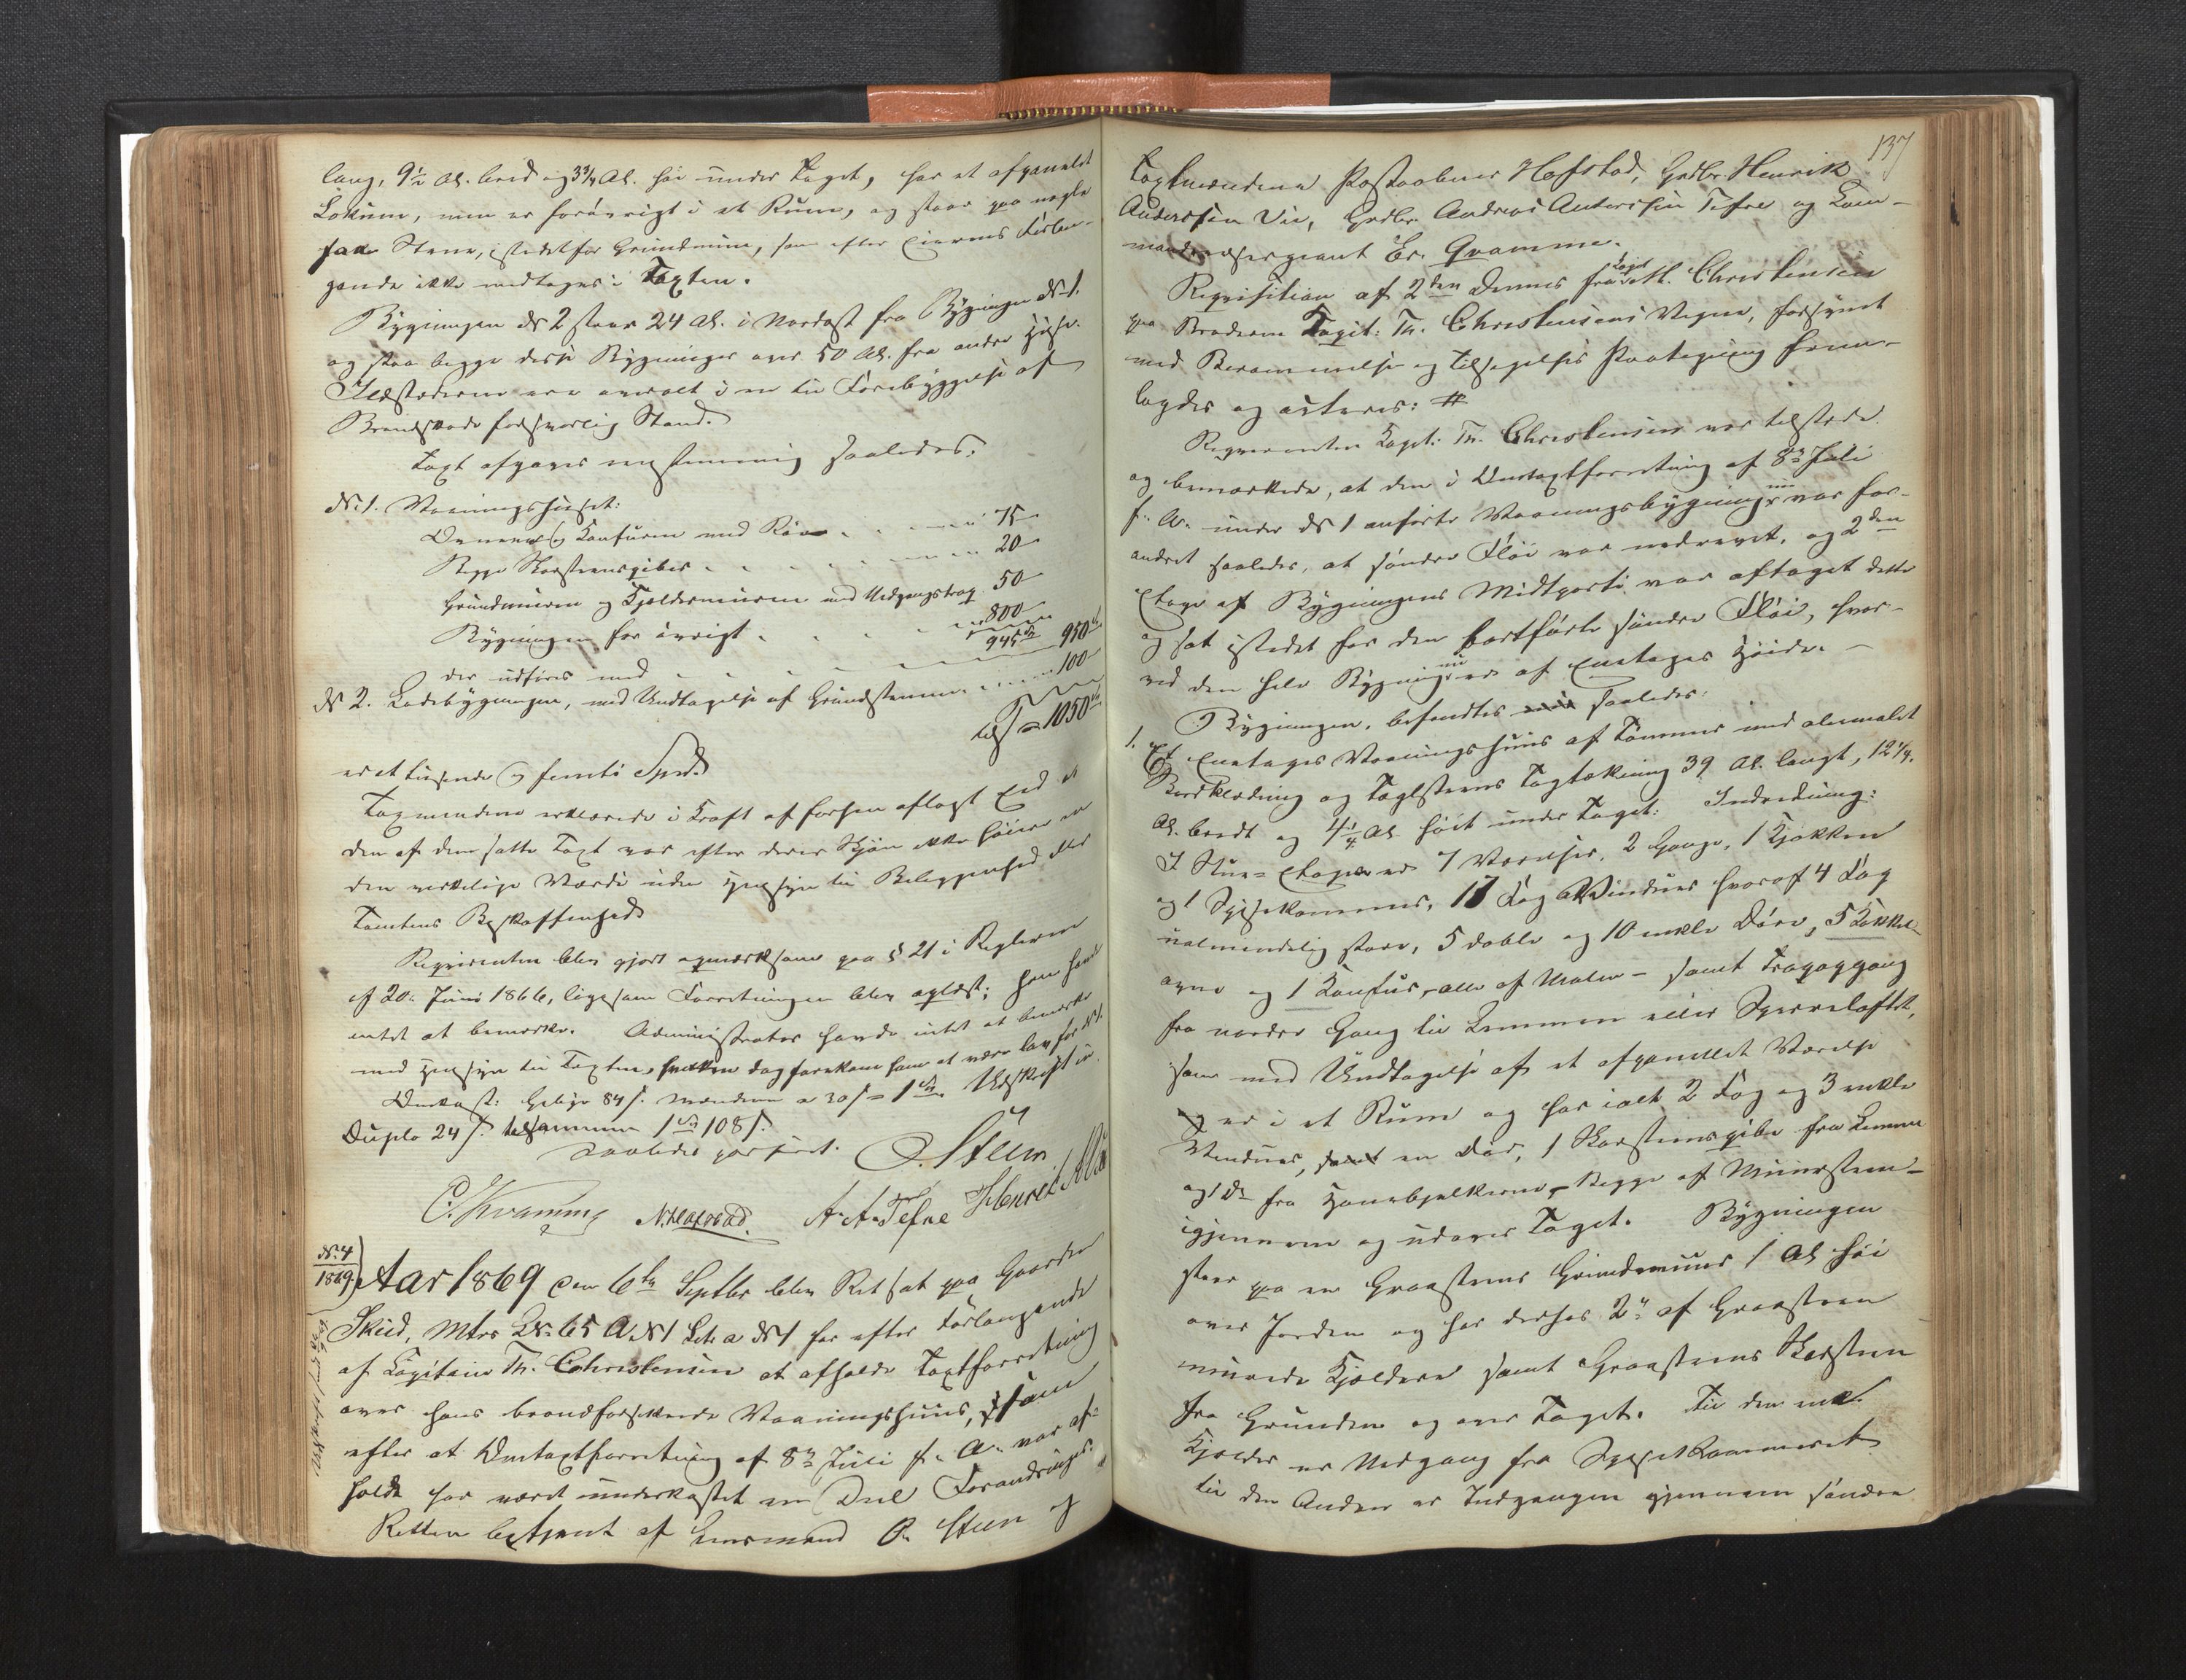 lang, 9 1/2 Al. bred og 3 3/4 Al. høi under Taget, har et afpanelet
Lokum, men er forøvrigt i et Rum, og staar paa nogle
faa Stene, istedetfor Grundmuur, som efter Eierens Forlan-
gende ikke medtages i Taxten.
Bygningen № 2 staar 24 Al. i Nordost fra Bygningen № 1.
og staa begge disse Bygninger over 50 Al. fra andre Huse.
Ildstederne ere overalt i en til Forebyggelse af
Brandskade forsvarlig Stand.
Taxt afgaves eenstemmig saaledes:
№ 1. Vaaningshuset:
Ovnene og Komfuren med Rør 75
Begge Skorsteenspiber 20
Grundmuren og Kjældermuren med Nedgangstrap 50
Bygningen for øvrigt 800
945
der udføres med 950
№ 2. Ladebygningen, med Undtagelse af Grundstenene 100
tils = 1050
er et tusende og femti Spd.
Taxmændene erklærede i Kraft af forhen aflagt Eed at
den af dem satte Taxt var efter deres Skjøn ikke høiere en
den virkelige Værdi uden Hensyn til Beliggenhed eller
Tomtens Beskaffenhed
Reqvirenten blev gjort opmærksom paa § 21 i Reglerne
af 20. Juni 1866, ligesom Forretningen blev oplæst; han havde
intet at bemærke. Administrator havde intet at bemærke
med Hensyn til Taxten, hvilken dog forekom ham at være lav for № 1.
Omkost: Gebyr 84 s. Mændene a 30 s = 1 Udskrift in
Duplo 24 s. tilsammen 1 108 s.
Saaledes passeret. P. Steen
C. Kvamme N. Hafstad A. A. Tefre Henrik Vie
№ 4
1869
Aar 1869 den 6te Septbr blev Ret sat paa Gaarden
Skeid, Mtr № 65 A № 1 Litr. a № 1 for efter Forlangende
af Kapitain Th. Christensen at afholde Taxtforretning
over hans brandforsikrede Vaaningshuus, som
efter at Omtaxtforretning af 8de Juli f. A. var af-
holdt har været underkastet en Deel Forandringer.
Retten betjent af Lensmand P. Steen og
137
Taxtmændene Postaabner Hafstad, Gdbr. Henrik
Anderssen Vie, Gdbr. Andreas Anderssen Tefre og Kom-
mandeersergeant Er. Qvamme.
Reqvisition af 2den dennes fra Kapt M. Christensen
paa Broderen Kapit: Th. Christensens Vegne, forsynet
med Berammelse og Tilsigelses Paategning frem-
lagdes og acteres: #
Reqvirenten Kapt: Th. Christensen var tilstede
og bemærkede, at den i Omtaxtforretning af 8de Juli
f. A. under № 1 anførte Vaaningsbygning nu var for-
andret saaledes, at søndre Fløi var nedrevet, og 2den
Etage af Bygningens Midtparti var aftaget dette
og sat istedet for den bortførte søndre Fløi, hvor-
ved den hele Bygning nu er af Eenetages Høide.
Bygningen, befandtes saaledes:
1. Et Eenetages Vaaningshuus af Tømmer med oliemalet
Bordklædning og Taglsteens Tagtækning 39 Al. langt, 12 1/4
Al. bredt og 4 1/4 Al høit under Taget. Indredning:
I Stue-Etagen er 7 Værelser, 2 Gange, 1 Kjøkken
og 1 Spisekammer, 17 Fag Vinduer hvoraf 4 Fag
ualmindelig store, 5 doble og 10 enkle Døre, 5 Kakkel-
ovne og 1 Komfur, alle af Malm – samt Trapopgang
fra nordre Gang til Lemmen eller Sperreloftet,
som med Undtagelse af et afpanellet Værelse
er i et Rum og har ialt 2 Fag og 3 enkle
Vinduer, samt en Dør, 1 Skorsteenspibe fra Lemmen
og 1 Do fra Hanebjelkerne, Begge af Muursteen
igjennem og udover Taget. Bygningen
staar paa en Graasteens Grundmuur 1 Al høi
over Jorden og har derhos 2de af Graasteen
murede Kjældere samt Graasteens Skorsteen
fra Grunden og over Taget. Til den ene
Kjælder er Nedgang fra Spisekammeret
til den Anden er Indgangen gjennem søndre